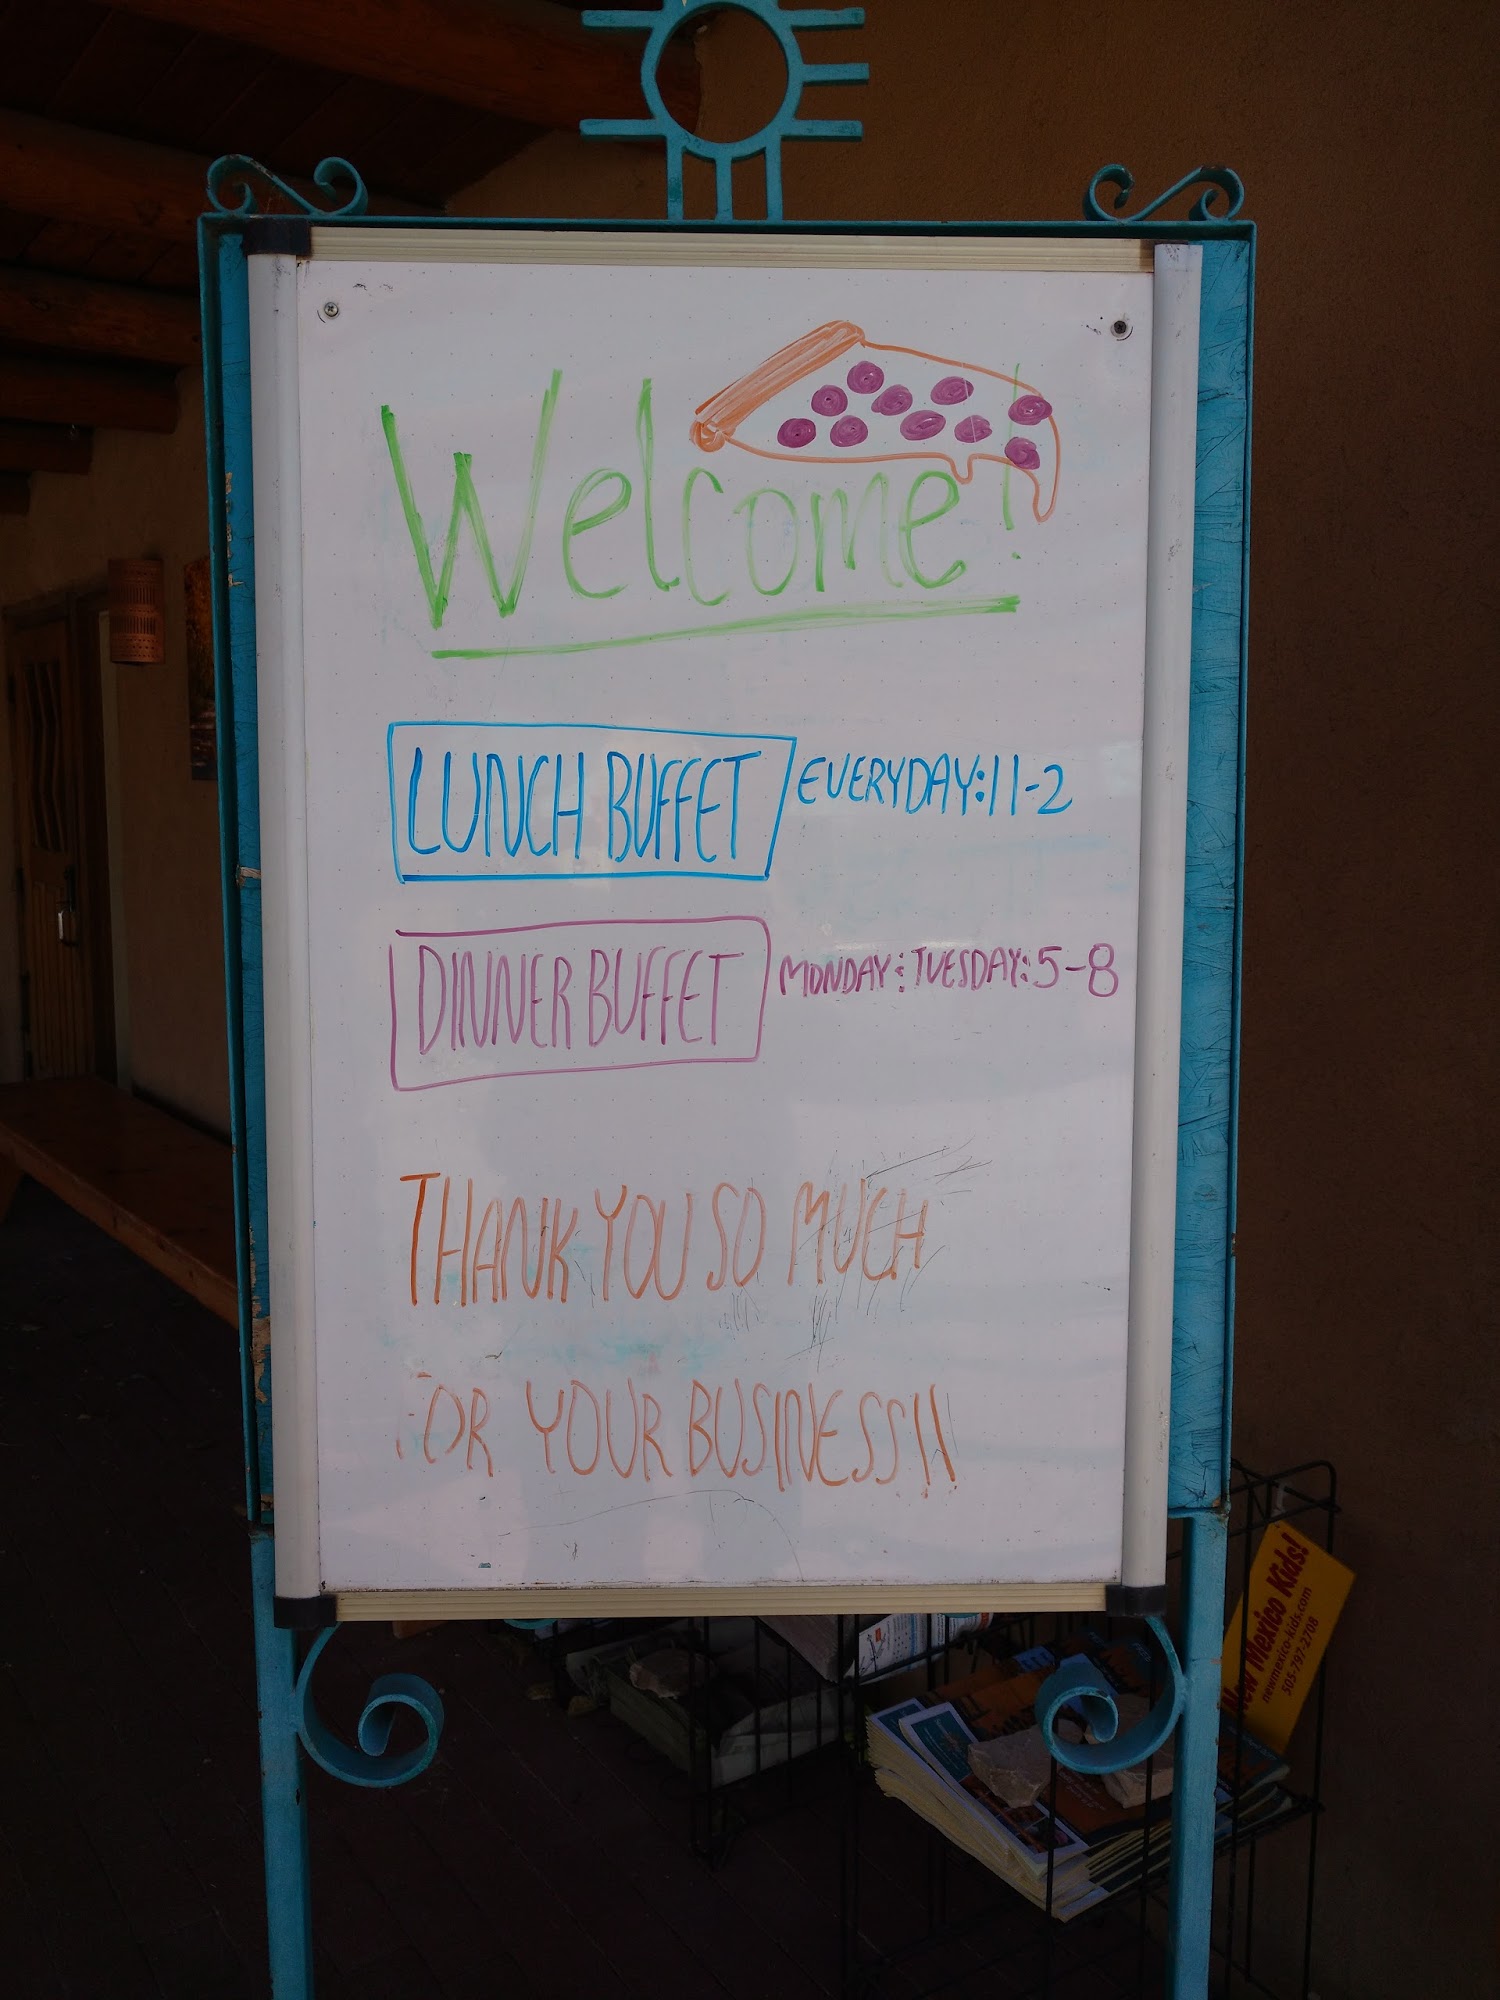 Welcome!
LUNCH BUFFET EVERYDAY:11-2
DINNER BUFFET MONDAY & TUESDAY: 5-8
THANK YOU SO MUCH
FOR YOUR BUSINESS!!
New Mexico Kids!
newmexico-kids.com
505-797-2708